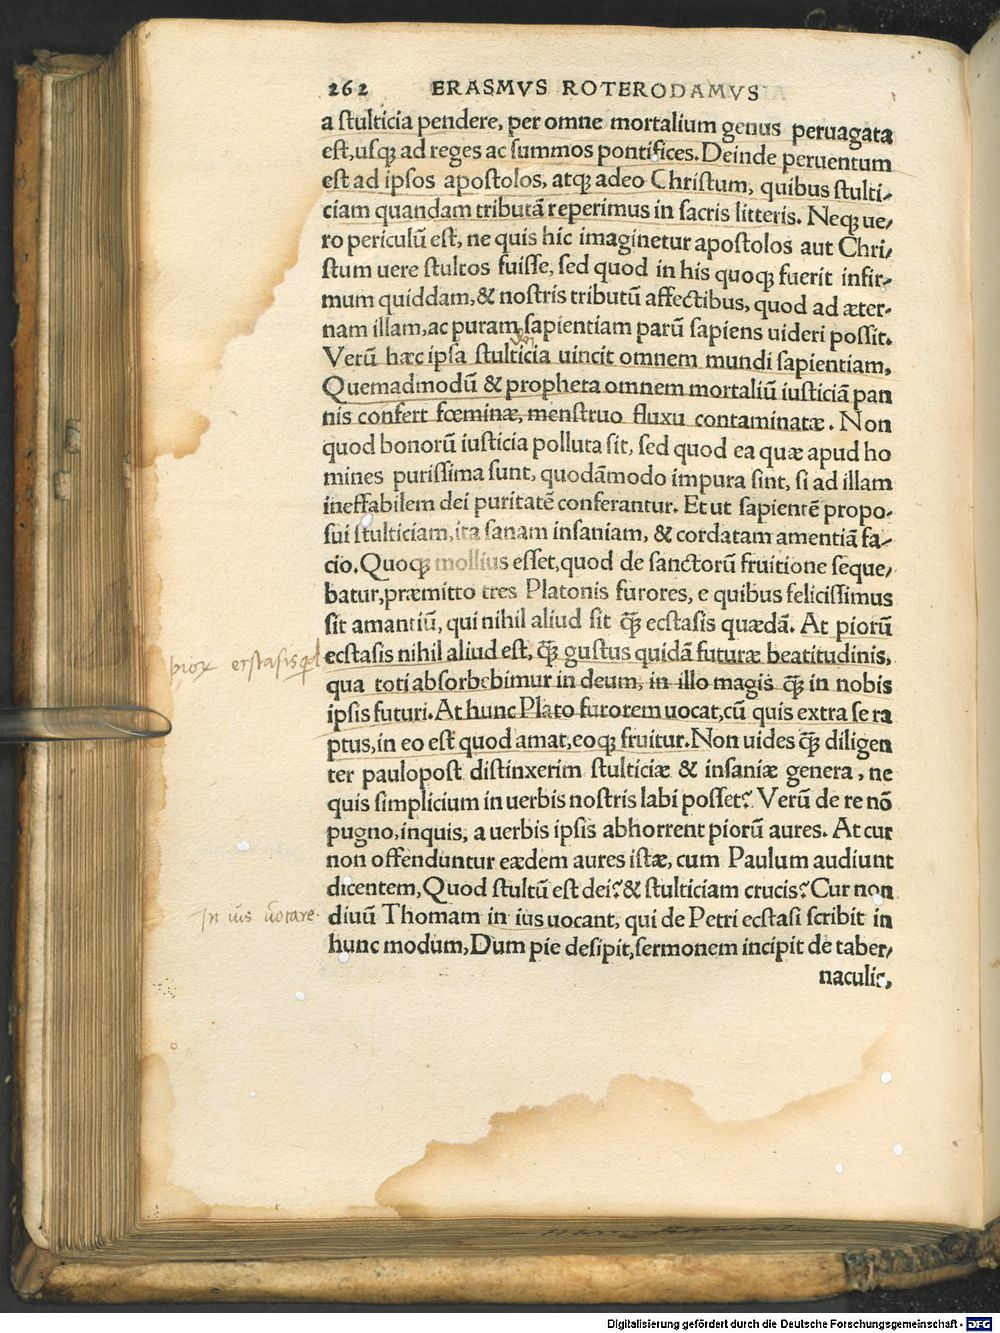 262 ERASMVS ROTERODAMVS
a stulticia pendere, per omne mortalium genus peruagata
est, usq; ad reges ac summos pontifices. Deinde peruentum
est ad ipsos apostolos, atq; adeo Christum, quibus stulti-
ciam quandam tributã reperimus in sacris litteris. Neq; ue/
ro periculũ est, ne quis hic imaginetur apostolos aut Chri/
stum uere stultos fuisse, sed quod in his quoq; fuerit infir-
mum quiddam, & nostris tributũ affectibus, quod ad æter-
nam illam, ac puram sapientiam parũ sapiens uideri possit.
Verũ hæc ipsa stulticia uincit omnem mundi sapientiam,
Quemadmodũ & propheta omnem mortaliũ iusticiã pan
nis confert fœminæ, menstruo fluxu contaminatæ. Non
quod bonorũ iusticia polluta sit, sed quod ea quæ apud ho
mines purissima sunt, quodãmodo impura sint, si ad illam
ineffabilem dei puritatẽ conferantur. Et ut sapientẽ propo-
sui stulticiam, ita sanam insaniam, & cordatam amentiã fa-
cio. Quoq; mollius esset, quod de sanctorũ fruitione seque/
batur, præmitto tres Platonis furores, e quibus felicissimus
sit amantiũ, qui nihil aliud sit q̃ ecstasis quædã. At piorũ
ecstasis nihil aliud est, q̃ gustus quidã futuræ beatitudinis,
qua toti absorbebimur in deum, in illo magis q̃ in nobis
ipsis futuri. At hunc Plato furorem uocat, cũ quis extra se ra
ptus, in eo est quod amat, eoq; fruitur. Non uides q̃ diligen
ter paulopost distinxerim stulticiæ & insaniæ genera, ne
quis simplicium in uerbis nostris labi posset? Verũ de re nõ
pugno, inquis, a uerbis ipsis abhorrent piorũ aures. At cur
non offenduntur eædem aures istæ, cum Paulum audiunt
dicentem, Quod stultũ est dei? & stulticiam crucis? Cur non
diuũ Thomam in ius uocant, qui de Petri ecstasi scribit in
hunc modum, Dum pie desipit, sermonem incipit de taber/
naculis,
ecstasis qd
In iũs uocare.
Digitalisierung gefördert durch die Deutsche Forschungsgemeinschaft - DFG